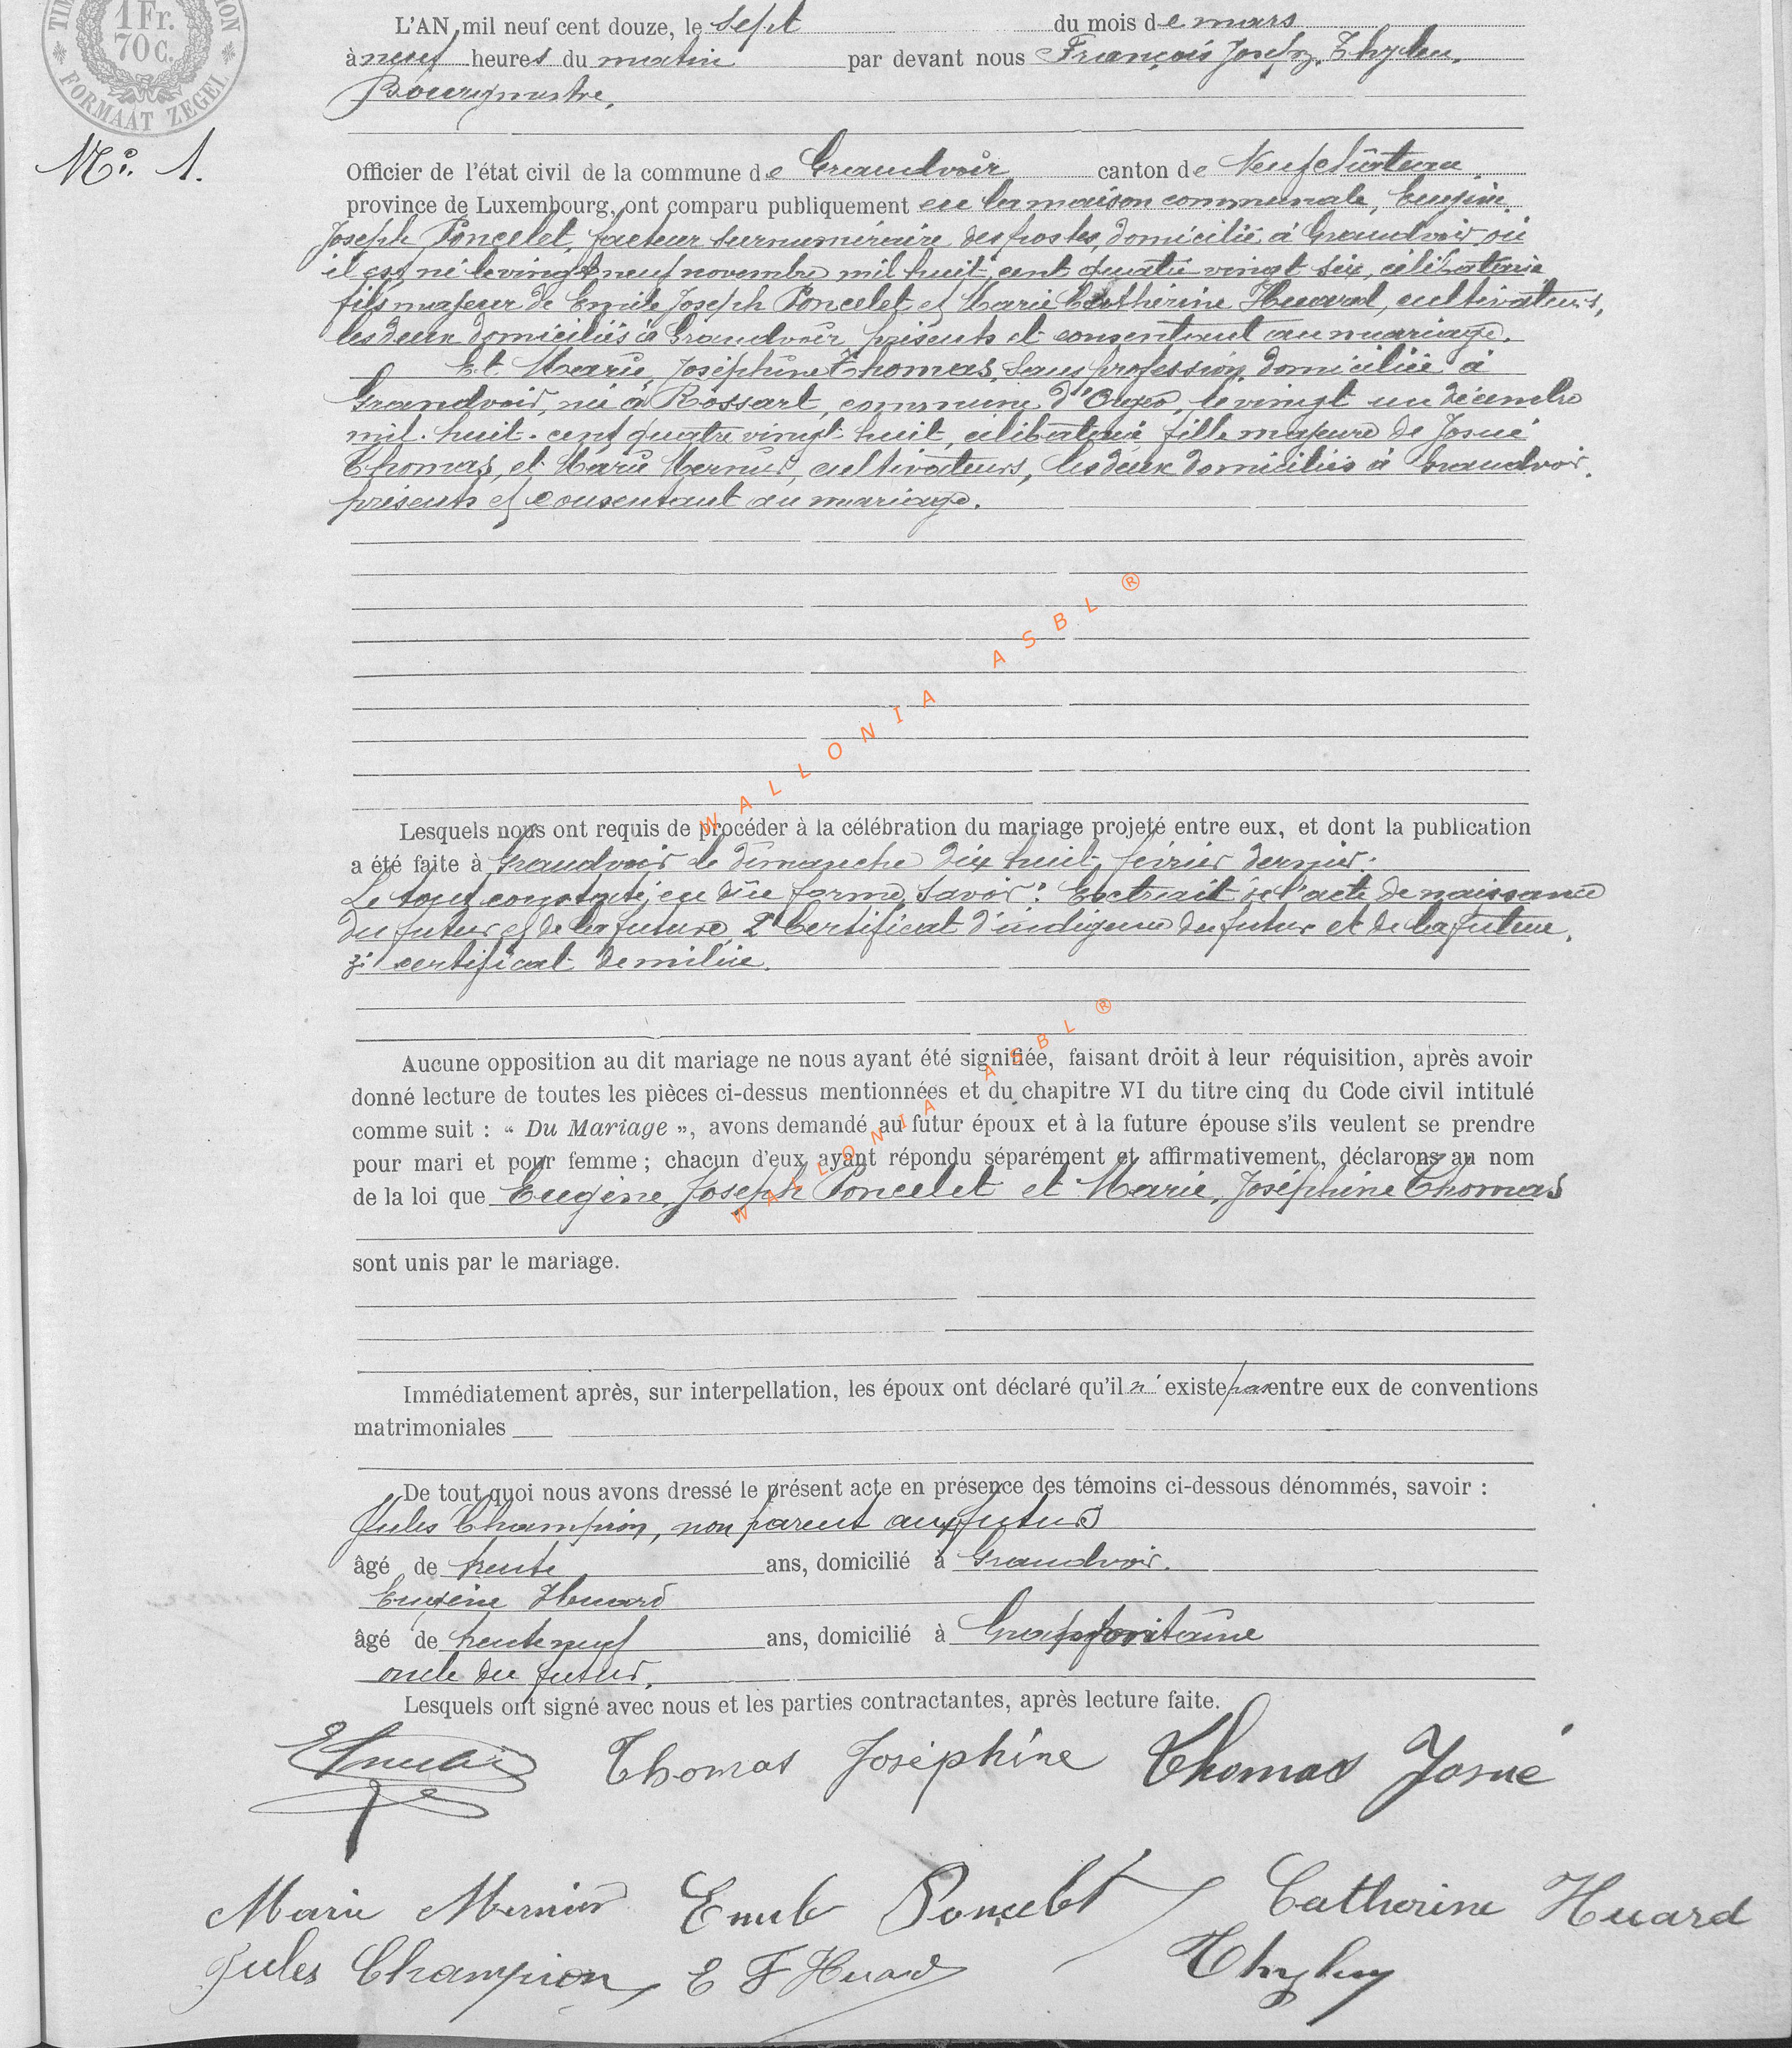 1 Fr.
70 c.
FORMAAT ZEGEL
L'AN mil neuf cent douze, le sept du mois de mars
à neuf heures du matin par devant nous François Joseph Thyleu,
Bourgmestre,
N° 1.
Officier de l'état civil de la commune de Grandvoir canton de Neufchâteau,
province de Luxembourg, ont comparu publiquement en la maison communale, Eugène
Joseph Poncelet, facteur surnuméraire des postes, domicilié à Grandvoir où
il est né le vingt neuf novembre mil huit cent quatre vingt six, célibataire
fils majeur de Emile Joseph Poncelet et Marie Catherine Huard, cultivateurs,
les deux domiciliés à Grandvoir présents et consentant au mariage.
Et Marie, Joséphine Thomas, sans profession, domiciliée à
Grandvoir, née à Rossart, commune d'Orgeo, le vingt un décembre
mil huit cent quatre vingt huit, célibataire fille majeure de Josué
Thomas, et Marie Mernier, cultivateurs, les deux domiciliés à Grandvoir,
présents et consentant au mariage.
Lesquels nous ont requis de procéder à la célébration du mariage projeté entre eux, et dont la publication
a été faite à Grandvoir le dimanche dix huit février dernier.
Le tout constaté en due forme, savoir : Extrait de l'acte de naissance
du futur et de la future 2° Certificat d'indigence du futur et de la future,
3° certificat de milice.
Aucune opposition au dit mariage ne nous ayant été signifiée, faisant droit à leur réquisition, après avoir
donné lecture de toutes les pièces ci-dessus mentionnées et du chapitre VI du titre cinq du Code civil intitulé
comme suit : « Du Mariage », avons demandé au futur époux et à la future épouse s'ils veulent se prendre
pour mari et pour femme ; chacun d'eux ayant répondu séparément et affirmativement, déclarons au nom
de la loi que Eugène, Joseph Poncelet et Marie, Joséphine Thomas
sont unis par le mariage.
Immédiatement après, sur interpellation, les époux ont déclaré qu'il n'existe pas entre eux de conventions
matrimoniales
De tout quoi nous avons dressé le présent acte en présence des témoins ci-dessous dénommés, savoir :
Jules Champion, non parent aux futurs
âgé de trente ans, domicilié à Grandvoir.
Eugène Huard
âgé de trente neuf ans, domicilié à Grapfontaine
oncle du futur.
Lesquels ont signé avec nous et les parties contractantes, après lecture faite.
Thomas Joséphine Thomas Josué
Marie Mernier Emile Poncelet Catherine Huard
Jules Champion E F Huard
WALLONIA ASBL ®
WALLONIA ASBL ®